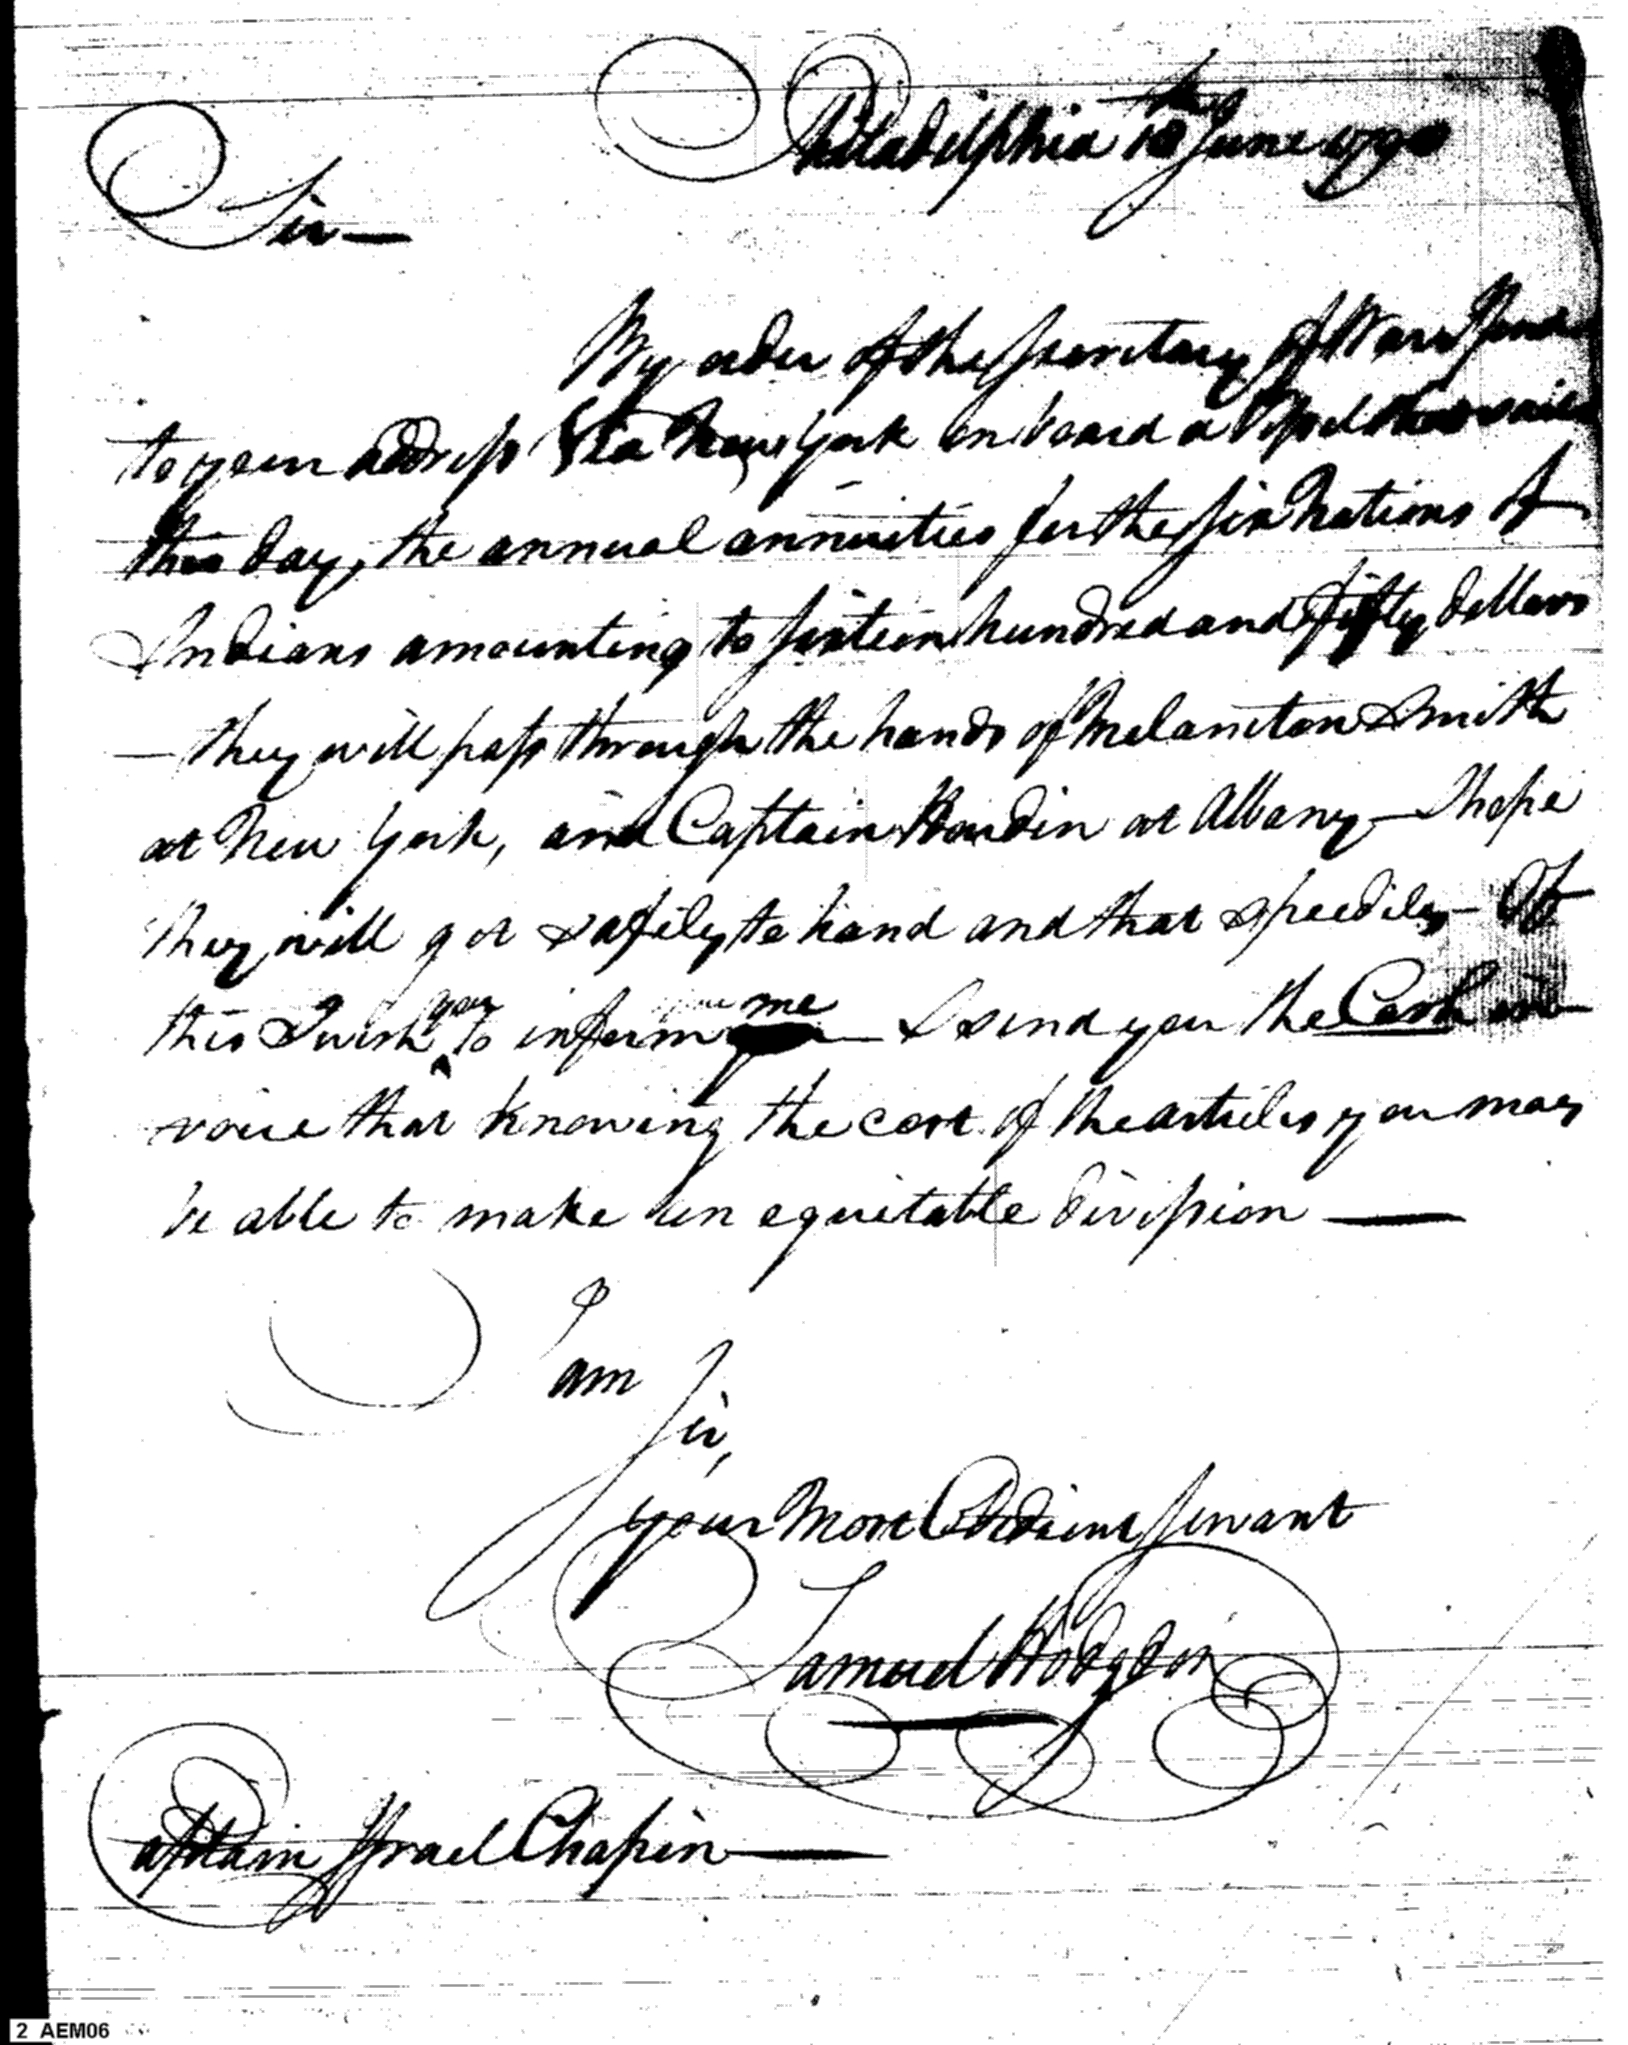 Philadelphia 18th June 179
Sir—
By order of the Secretary of War I send
to your address Via New York on board a Vessel that sails
this day, the annual annuities for the six Nations of
Indians amounting to sixteen hundred and fifty dollars
— they will pass through the hands of Melancton Smith
at New York, and Captain Hardin at Albany — I hope
they will get safely to hand and that speedily — Of
this I wish you to inform me — I send you the Cost in-
voice that knowing the cost of the articles you may
be able to make an equitable division —
I
am
Sir,
your Most Obedient Servant
Samuel Hodgdon
Captain Israel Chapin —
2 AEM06